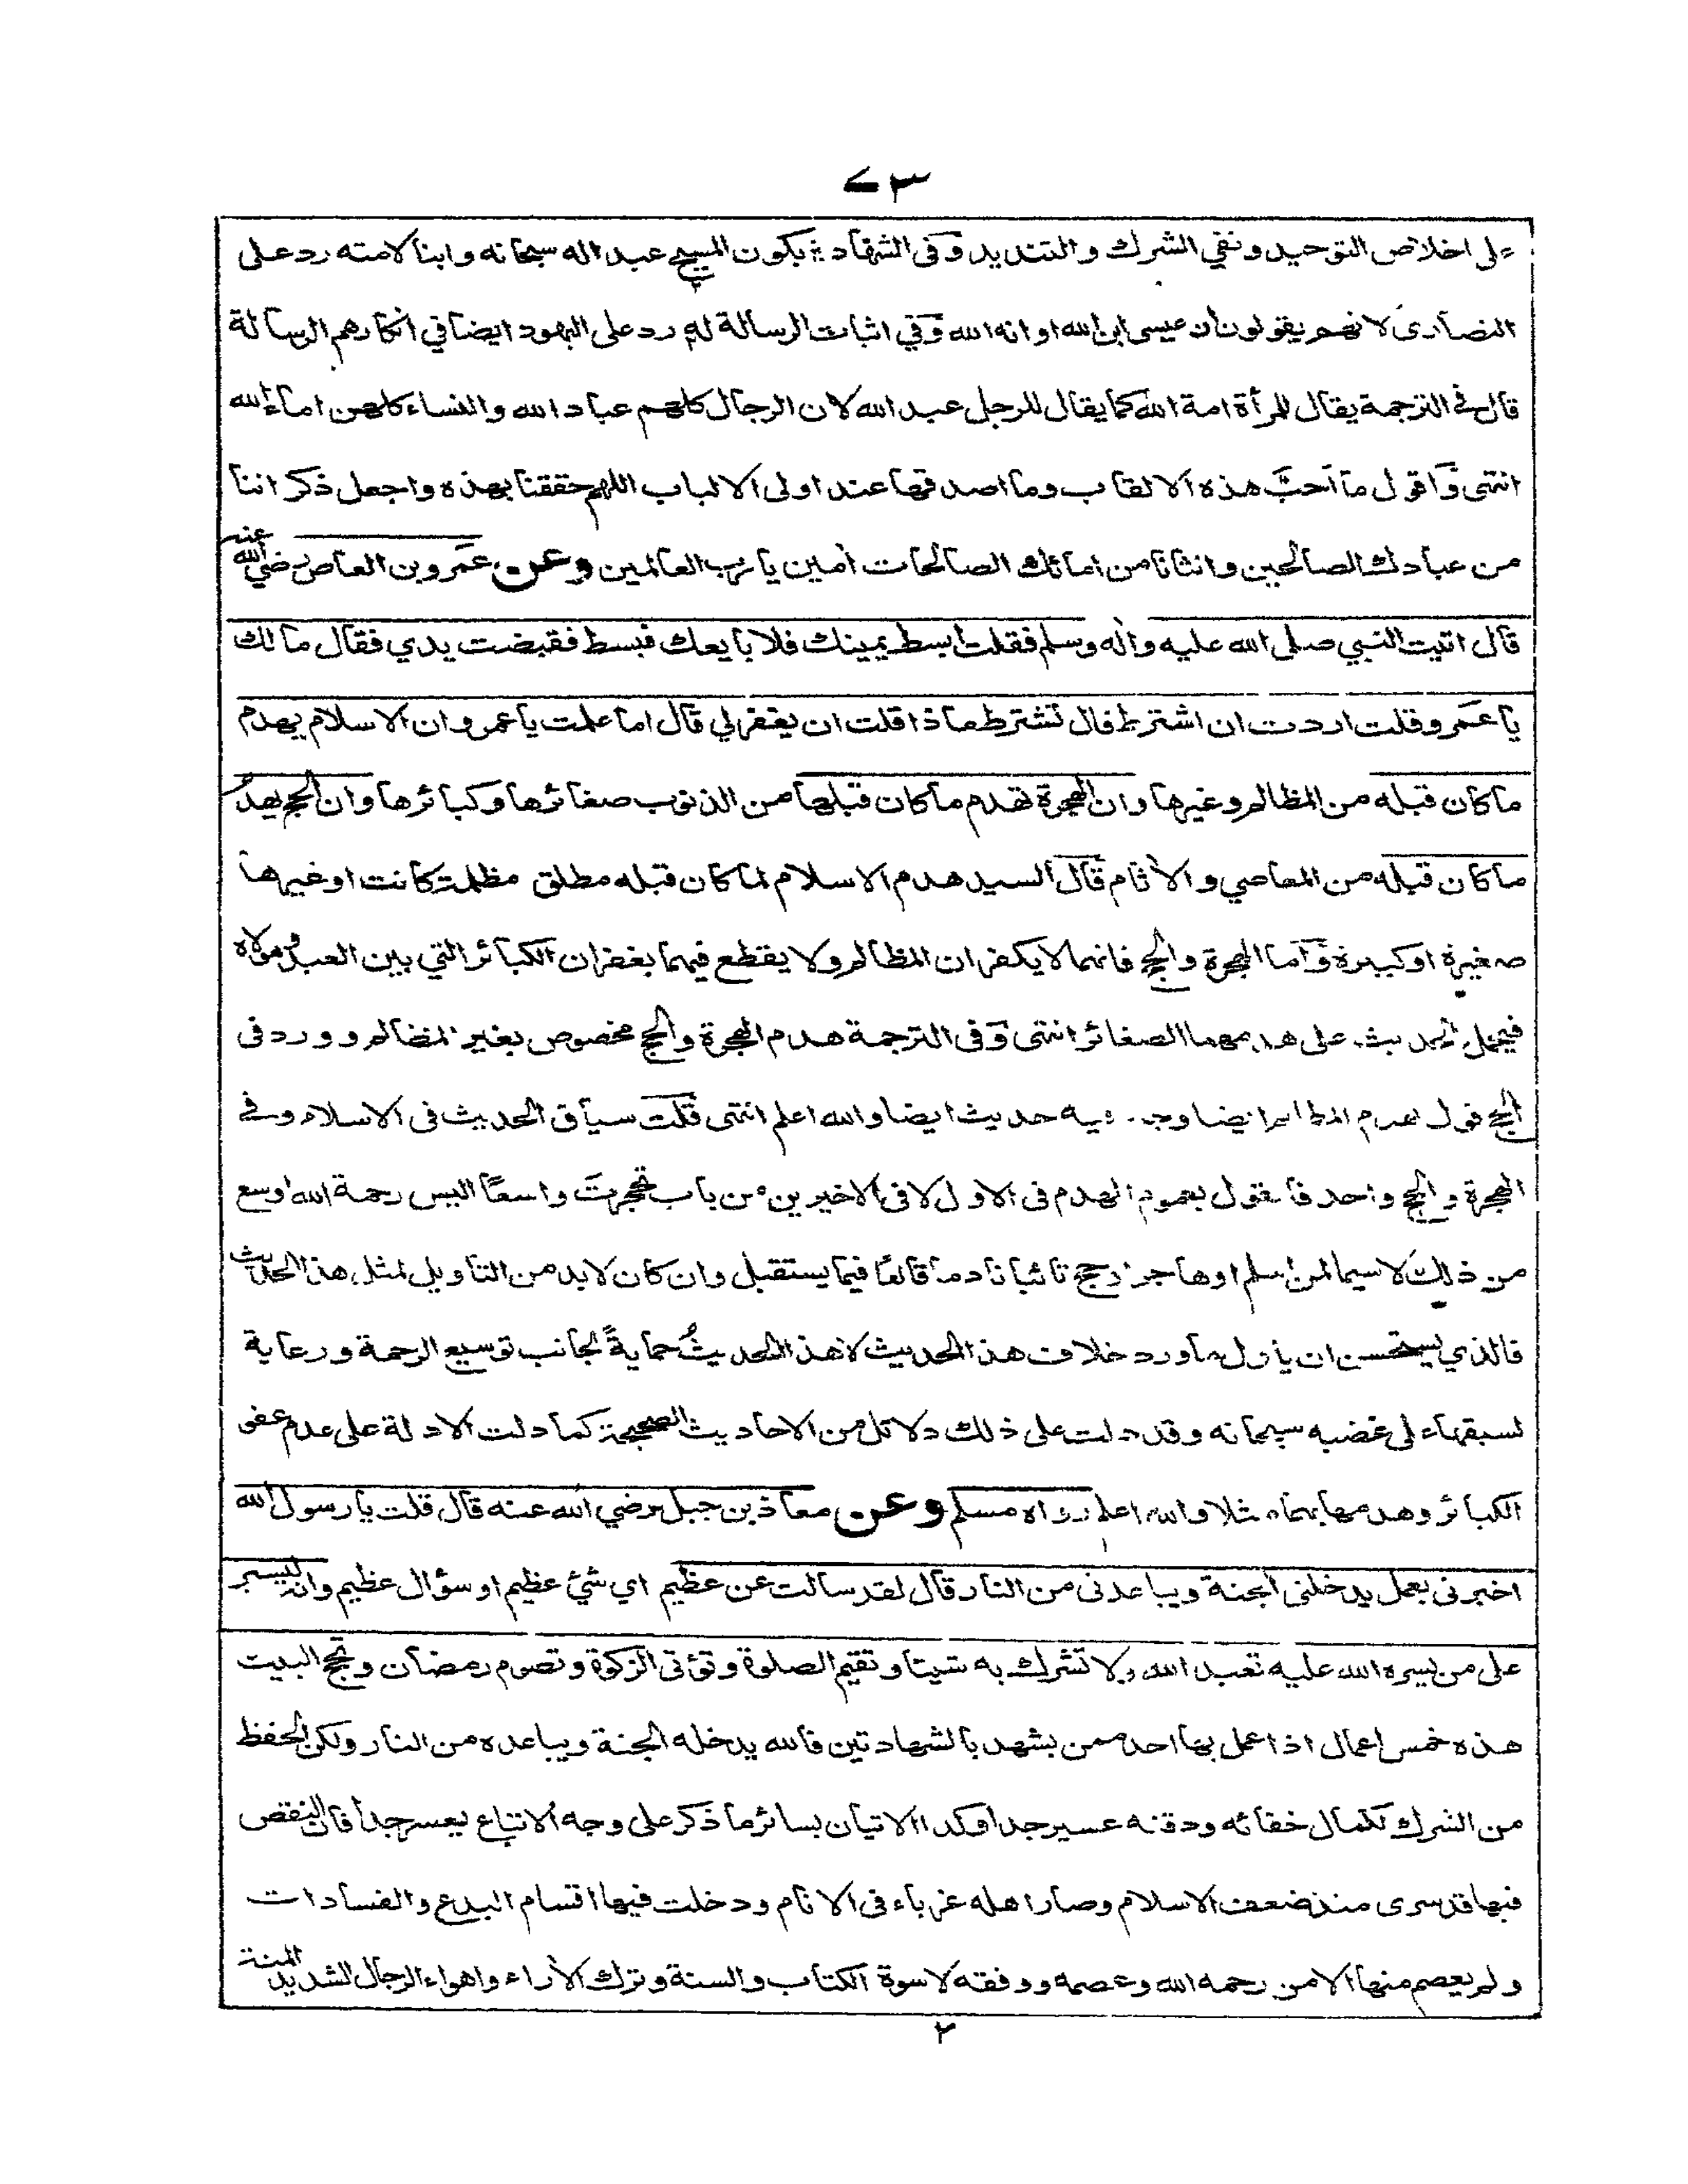 ٧٣
على اخلاص التوحيد ونفي الشرك والتنديد وفى الشهادة بكون المسيح عبد اله سبحانه وابنا لامته رد على
النصارى لانهم يقولون ان عيسى ابن الله او انه الله وفي اثبات الرسالة له رد على اليهود ايضا في انكارهم الرسالة
قال في الترجمة يقال للمرأة امة الله كما يقال للرجل عبد الله لان الرجال كلهم عباد الله والنساء كلهن اماء الله
انتهى واقول ما احب هذه الالقاب وما اصدقها عند اولى الالباب اللهم حققنا بهذه واجعل ذكراننا
من عبادك الصالحين واناثنا من امائك الصالحات امين يا رب العالمين وعن عمرو بن العاص رضي الله عنه
قال اتيت النبي صلى الله عليه واله وسلم فقلت ابسط يمينك فلابايعك فبسط فقبضت يدي فقال مالك
يا عمرو قلت اردت ان اشترط فال تشترط ماذا قلت ان يغفر لي قال اما علمت يا عمرو ان الاسلام يهدم
ما كان قبله من المظالم وغيرها وان الهجرة تهدم ما كان قبلها من الذنوب صغائرها وكبائرها وان الحج يهدم
ما كان قبله من المعاصي والآثام قال السيد هدم الاسلام لما كان قبله مطلق مظلمة كانت او غيرها
صغيرة او كبيرة واما الهجرة والحج فانهما لا يكفران المظالم ولا يقطع فيهما بغفران الكبائر التي بين العبد ومولاه
فيحمل الحديث على هدمهما الصغائر انتهى وفى الترجمة هدم الهجرة والحج مخصوص بغير المظالم وورد فى
الحج قول بهدم المظالم ايضا وجاء فيه حديث ايضا والله اعلم انتهى قلت سياق الحديث فى الاسلام وفي
الهجرة والحج واحد فالقول بعموم الهدم فى الاول لا فى الاخيرين من باب تحجرت واسعًا اليس رحمة الله اوسع
من ذلك لا سيما لمن اسلم او هاجر او حج تائبا نادما قالعا فيما يستقبل وان كان لابد من التاويل لمثل هذا الحديث
فالذي يستحسن ان ياول ما ورد خلاف هذا الحديث لا هذا الحديث حمايةً لجانب توسيع الرحمة ورعاية
لسبقها على غضبه سبحانه وقد دلت على ذلك دلائل من الاحاديث الصحيحة كما دلت الادلة على عدم عفى
الكبائر وهدمها بهما مثلا والله اعلم رواه مسلم وعن معاذ بن جبل رضي الله عنه قال قلت يا رسول الله
اخبرنى بعمل يدخلنى الجنة ويباعدنى من النار قال لقد سالت عن عظيم اي شئ عظيم او سؤال عظيم وانه ليسير
على من يسره الله عليه تعبد الله ولا تشرك به شيئا وتقيم الصلوة وتؤتى الزكوة وتصوم رمضان وتحج البيت
هذه خمس اعمال اذا عمل بها احد ممن يشهد بالشهادتين فالله يدخله الجنة ويباعده من النار ولكن الحفظ
من الشرك لكمال خفائه ودقته عسير جدا وكذا الاتيان بسائر ما ذكر على وجه الاتباع يعسر جدا فان النقص
فيها قد سرى منذ ضعف الاسلام وصار اهله غرباء فى الانام ودخلت فيها اقسام البدع والفسادات
ولم يعصم منها الا من رحمه الله وعصمه ووفقه لاسوة الكتاب والسنة وترك الأراء واهواء الرجال الشديد المنة
٢